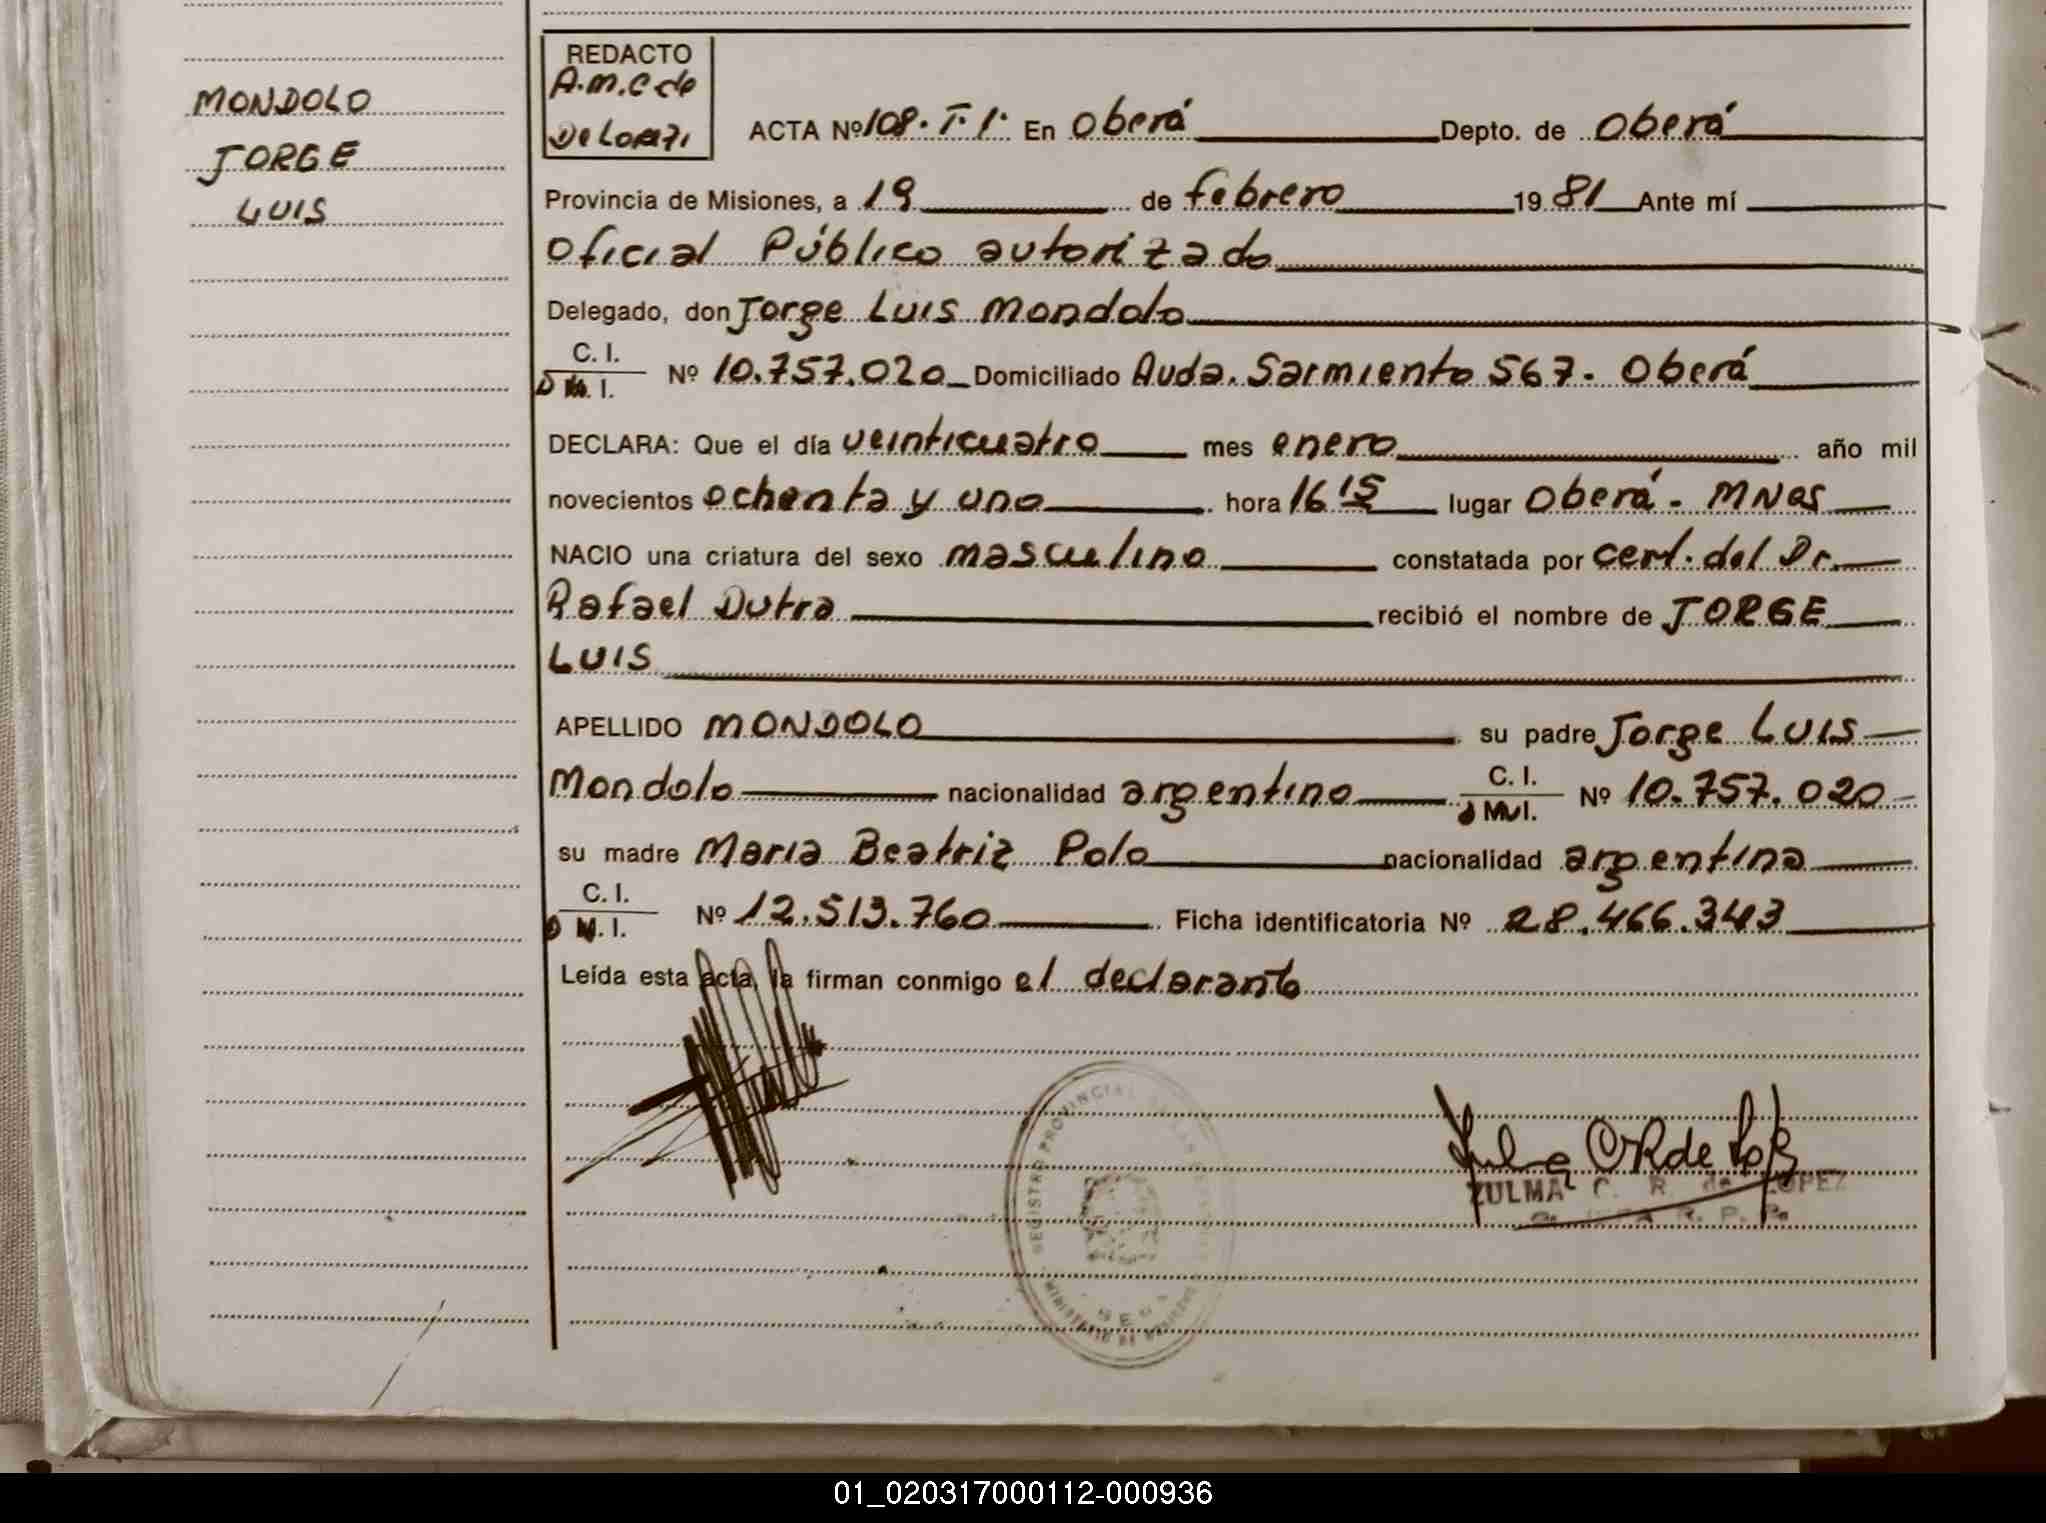 MONDOLO
JORGE
LUIS
REDACTO
A.M.C de
De Lorazi
ACTA Nº 108. T. I. En Oberá Depto. de Oberá
Provincia de Misiones, a 19 de febrero 1981 Ante mí
Oficial Público autorizado
Delegado, don Jorge Luis Mondolo
C. I.
D M. I. Nº 10.757.020 Domiciliado Avda. Sarmiento 567. Oberá
DECLARA: Que el día veinticuatro mes enero año mil
novecientos ochenta y uno hora 16 15 lugar Oberá - MNes
NACIO una criatura del sexo masculino constatada por cert. del Dr.
Rafael Dutra recibió el nombre de JORGE
LUIS
APELLIDO MONDOLO su padre Jorge Luis
Mondolo nacionalidad argentino C. I. Nº 10.757.020
su madre Maria Beatriz Polo nacionalidad argentina
C. I.
D M. I. Nº 12.513.760 Ficha identificatoria Nº 28.466.343
Leída esta acta, la firman conmigo el declarante
REGISTRO PROVINCIAL DE LAS
MINISTERIO DE
Zulma C R de López
ZULMA C. R. de LOPEZ
R. P. P.
01_020317000112-000936